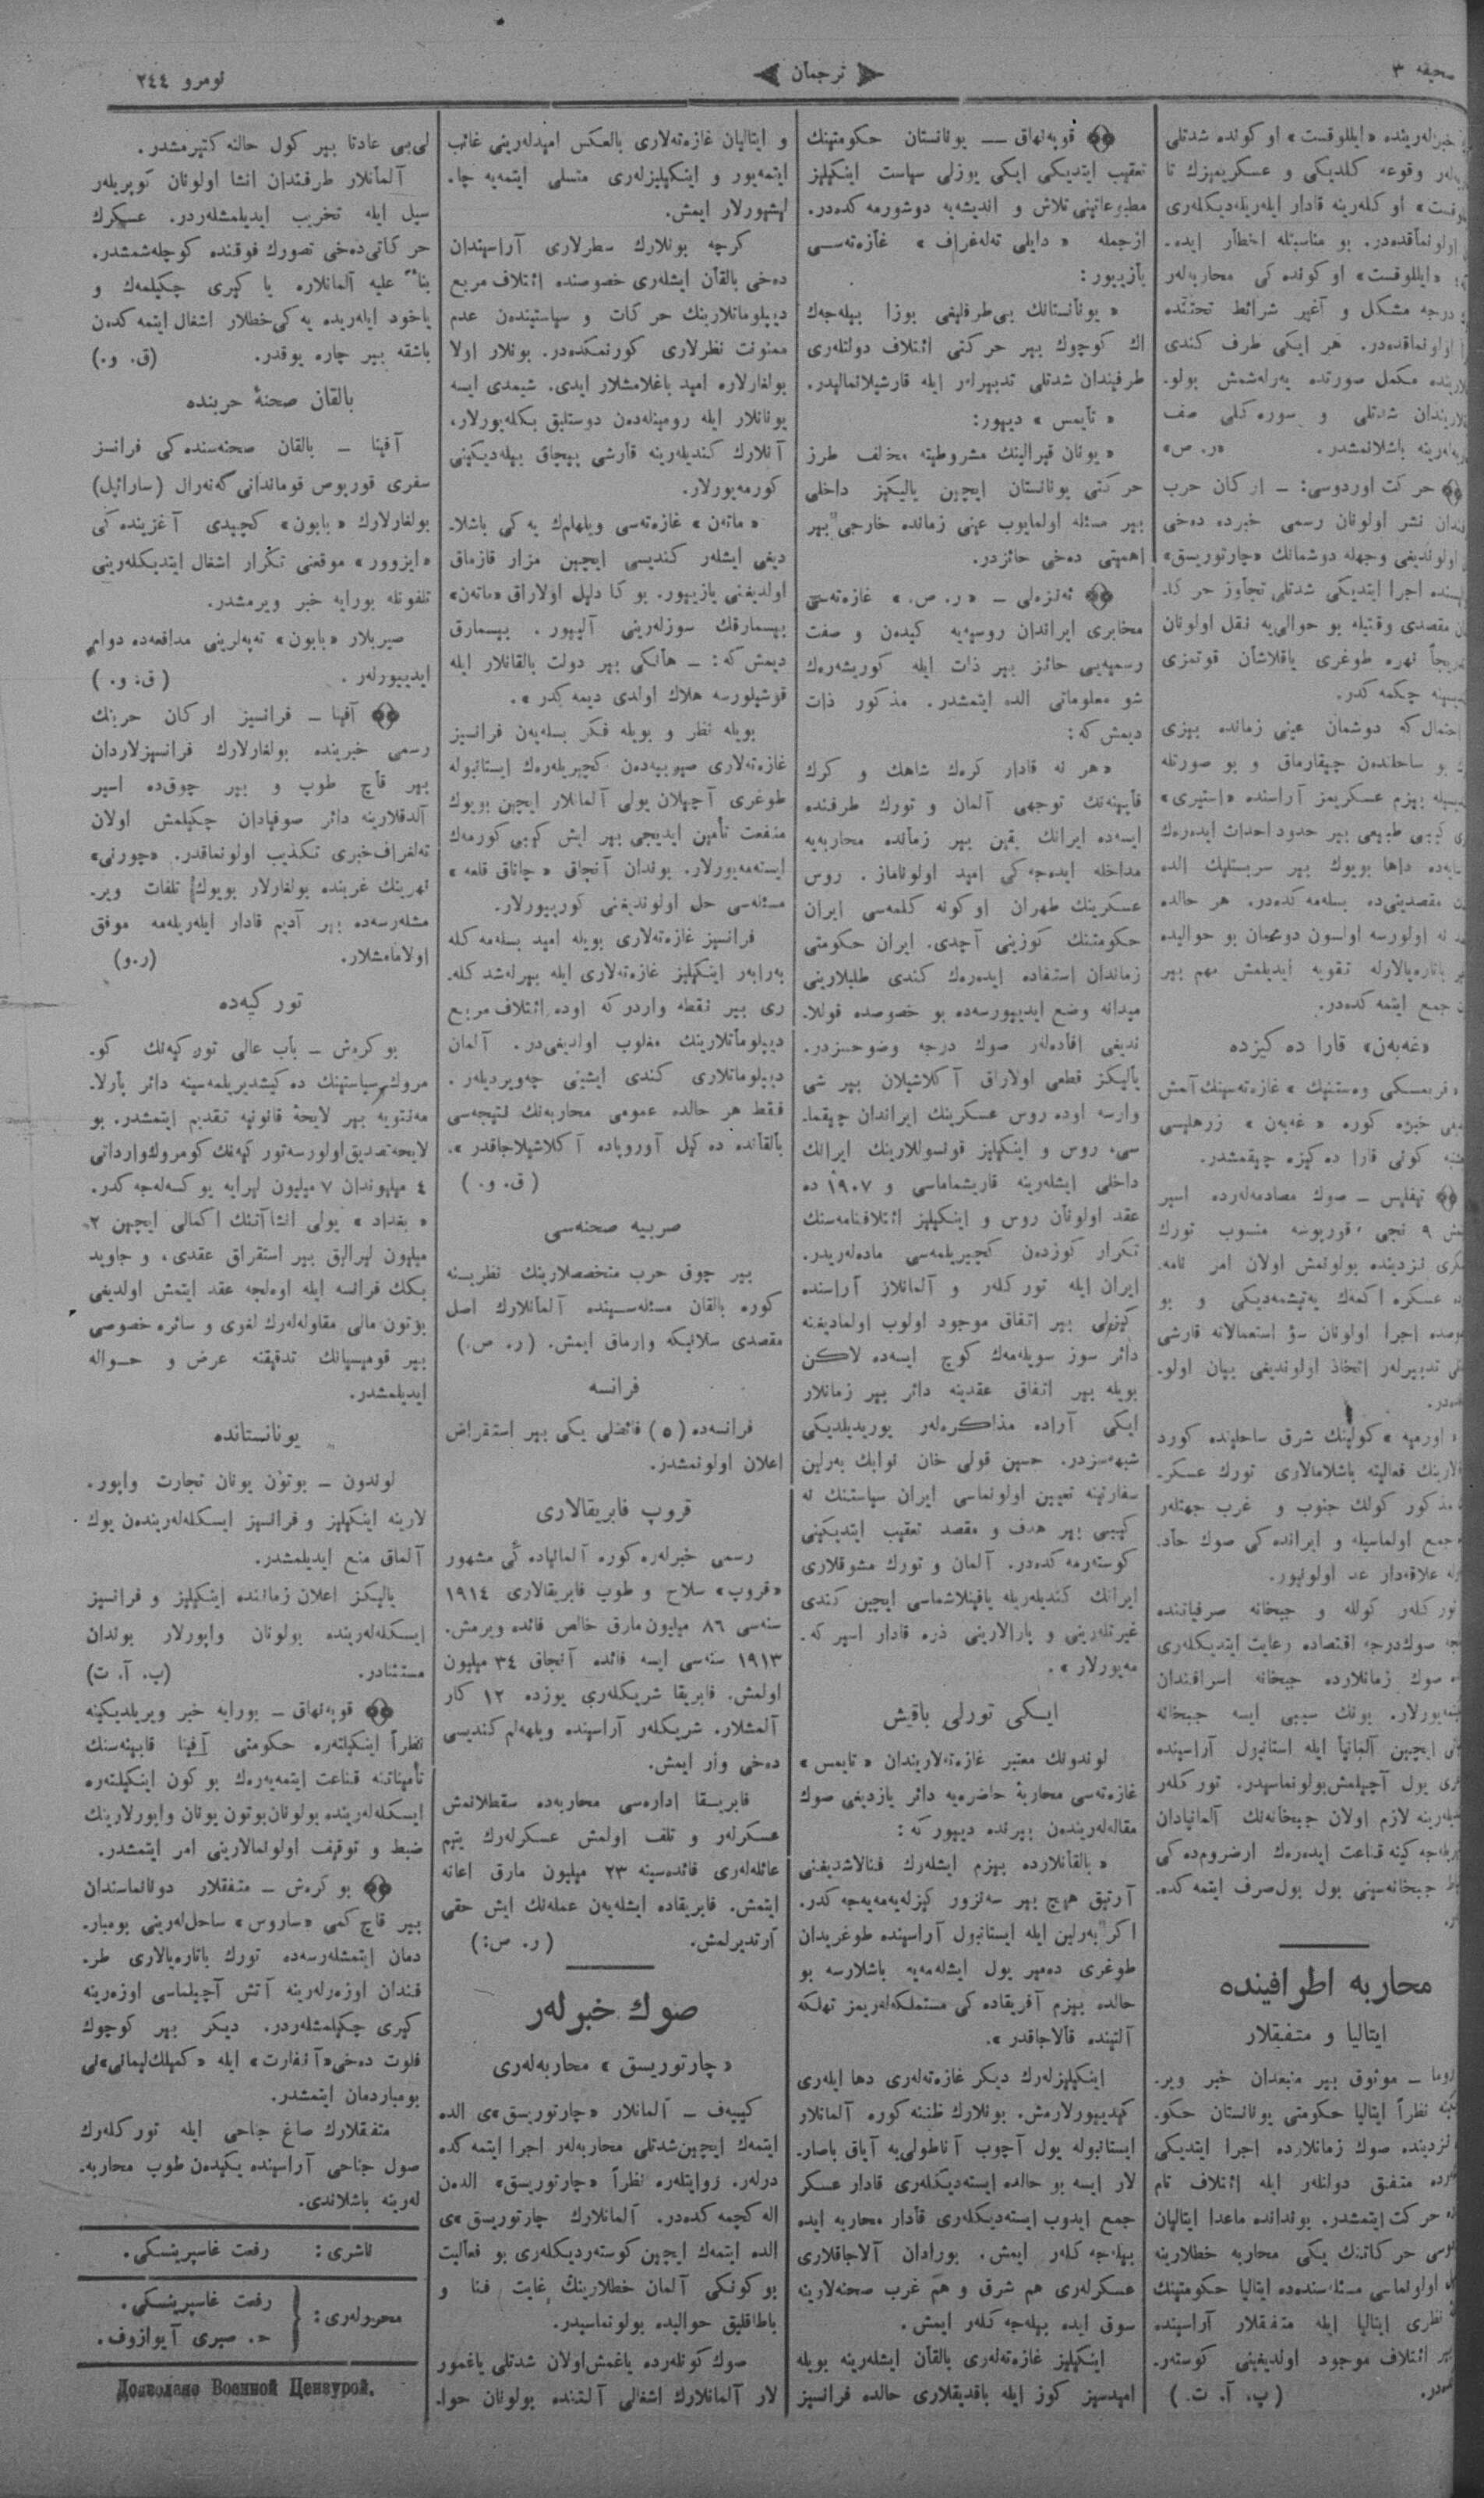 صحيفه ٣
ترجمان
نومرو ٢٤٤
خبرلەرینده «ایللوقست» او كونده شدتلی
وقوعه كلدیكی و عسكریمزك تا
او كلەرینه قادار ایلەریلەدیكلەری
اولونماقدەدر. بو مناسبتله اخطار ایدە۔
«ایللوقست» او كونده كی محاربەلەر
درجه مشكل و آغیر شرائط تحتنده
اولونماقدەدر. هر ایكی طرف كندی
مكمل صورتده یەرلەشمش بولو۔
شدتلی و سورەكلی صف
باشلانمشدر. «ر. ص»
حركت اوردوسی: ــ اركان حرب
نشر اولونان رسمی خبرده دەخی
اولوندیغی وجهله دوشمانك «چارتوریسق»
اجرا ایتدیكی شدتلی تجاوز حركا۔
مقصدی وقتیله بو حوالی‌یه نقل اولونان
نهره طوغری یاقلاشان قوتمزی
چكمەكدر.
احتمال كه دوشمان عینی زمانده بیزی
بو ساحلدەن چیقارماق و بو صورتله
بیزم عسكریمز آراسنده «استیری»
كیبی طبیعی بیر حدود احداث ایدەرەك
داها بویوك بیر سربستلیك الده
مقصدینی‌ده بسلەمەكدەدر. هر حالده
نه اولورسه اولسون دوشمان بو حوالیده
باتاره‌یالارله تقویه ایدیلمش مهم بیر
جمع ایتمەكدەدر.
«غەبەن» قارا دەكیزده
«قریمسكی وەستنیك» غازەتەسینك آلمش
خبره كوره «غەبەن» زرهلیسی
كونی قارا دەكیزه چیقمشدر.
تیفلیس ــ صوك مصادمەلەرده اسیر
٩ نجی قورپوسه منسوب تورك
نزدینده بولونمش اولان امر نامە۔
عسكره اكمەك یەتیشمەدیكی و بو
اجرا اولونان سؤ استعمالانه قارشی
تدبیرلەر اتخاذ اولوندیغی بیان اولو۔
«اورمیه» كولینك شرق ساحلینده كورد
فعالیته باشلامالاری تورك عسكر۔
مذكور كولك جنوب و غرب جهتلەر
جمع اولماسیله و ایرانده كی صوك حاد۔
علاقەدار عد اولونیور.
توركلەر كولله و جبخانه صرفیاتنده
صوك‌درجه اقتصاده رعایت ایتدیكلەری
صوك زمانلارده جبخانه اسرافندان
بونك سببی ایسه جبخانه
ایچین آلمانیا ایله استانبول آراسینده
یول آچیلمش‌بولونماسیدر. توركلەر
لازم اولان جبخانەنك آلمانیادان
كینه قناعت ایدەرەك ارضرومده كی
جبخانەسینی بول بول‌صرف ایتمەكده۔
محاربه اطرافینده
ایتالیا و متفقلار
روما ــ موثوق بیر منبعدان خبر ویر۔
نظراً ایتالیا حكومتی یونانستان حكو۔
نزدینده صوك زمانلارده اجرا ایتدیكی
متفق دولتلەر ایله ائتلاف تام
حركت ایتمشدر. بوندانده ماعدا ایتالیان
حركاتنك یكی محاربه خطلارینه
اولونماسی مسئلەسنده‌ده ایتالیا حكومتینك
نظری ایتالیا ایله متفقلار آراسینده
ائتلاف موجود اولدیغینی كوستەر۔
(پ. آ. ت.)
قوپەنهاق ــ یونانستان حكومتینك
تعقیب ایتدیكی ایكی یوزلی سیاست اینكیلیز
مطبوعاتینی تلاش و اندیشه‌یه دوشورمەكدەدر.
ازجمله «دایلی تەلەغراف» غازەتەسی
یازییور:
«یونانستانك بی‌طرفلیغی بوزا بیلەجەك
اك كوچوك بیر حركتی ائتلاف دولتلەری
طرفیندان شدتلی تدبیرلەر ایله قارشیلانمالیدر.
«تایمس» دییور:
«یونان قیرالینك مشروطیته مخالف طرز
حركتی یونانستان ایچین یالیكز داخلی
بیر مسئله اولمایوب عینی زمانده خارجی بیر
اهمیتی دەخی حائزدر.
ئەنزەلی ــ «ر. ص.» غازەتەسی
مخابری ایراندان روسیه‌یه كیدەن و صفت
رسمیه‌یی حائز بیر ذات ایله كوریشەرەك
شو معلوماتی الده ایتمشدر. مذكور ذات
دیمش‌كه:
«هر نه قادار كرەك شاهك و كرك
قابینەنك توجهی آلمان و تورك طرفنده
ایسه‌ده ایرانك یقین بیر زمانده محاربه‌یه
مداخله ایدەجەكی امید اولوناماز. روس
عسكرینك طهران اوكونه كلمەسی ایران
حكومتنك كوزینی آچدی. ایران حكومتی
زماندان استفاده ایدەرەك كندی طلبلارینی
میدانه وضع ایدییورسەده بو خصوصده قوللا۔
ندیغی افادەلەر صوك درجه وضوحسزدر.
یالیكز قطعی اولاراق آكلاشیلان بیر شی
وارسه اوده روس عسكرینك ایراندان چیقما۔
سی، روس و اینكیلیز قونسوللارینك ایرانك
داخلی ایشلەرینه قاریشماماسی و ١٩٠٧ ده
عقد اولونان روس و اینكیلیز ائتلافنامەسنك
تكرار كوزدەن كچیریلمەسی مادەلەریدر.
ایران ایله توركلەر و آلمانلار آراسنده
كیزلی بیر اتفاق موجود اولوب اولمادیغنه
دائر سوز سویلەمەك كوچ ایسەده لاكن
بویله بیر اتفاق عقدینه دائر بیر زمانلار
ایكی آراده مذاكرەلەر یوریدیلدیكی
شبهەسزدر. حسین قولی خان نوابك بەرلین
سفارتینه تعیین اولونماسی ایران سیاستنك نه
كیبی بیر هدف و مقصد تعقیب ایتدیكینی
كوستەرمەكدەدر. آلمان و تورك مشوقلاری
ایرانك كندیلەریله یاقینلاشماسی ایچین كندی
غیرتلەرینی و پارالارینی ذره قادار اسیركە۔
مەیورلار».
ایكی تورلی باقیش
لوندونك معتبر غازەتەلاریندان «تایمس»
غازەتەسی محاربهٔ حاضره‌یه دائر یازدیغی صوك
مقالەلەریندەن بیرنده دییور كه:
«بالقانلارده بیزم ایشلەرك فنالاشدیغنی
آرتیق هیچ بیر سەنزور كیزلەیەمەیەجەكدر.
اكر بەرلین ایله ایستانبول آراسینده طوغریدان
طوغری دەمیر یول ایشلەمەیه باشلارسه بو
حالده بیزم آفریقاده كی مستملكەلەریمز تهلكه
آلتینده قالاجاقدر».
اینكیلیزلەرك دیكر غازەتەلەری دها ایلەری
كیدیپورلارمش. بونلارك ظننه كوره آلمانلار
ایستانبوله یول آچوب آناطولی‌یه آیاق باصار۔
لار ایسه بو حالده ایستەدیكلەری قادار عسكر
جمع ایدوب ایستەدیكلەری قادار محاربه ایده
بیلەجەكلەر ایمش. بورادان آلاجاقلاری
عسكرلەری هم شرق و هم غرب صحنەلارینه
سوق ایده بیلەجەكلەر ایمش.
اینكیلیز غازەتەلەری بالقان ایشلەرینه بویله
امیدسیز كوز ایله باقدیقلاری حالده فرانسیز
و ایتالیان غازەتەلاری بالعكس امیدلەرینی غائب
ایتمەیور و اینكیلیزلەری متسلی ایتمەیه چا۔
لیشیورلار ایمش.
كرچه بونلارك سطرلاری آراسیندان
دەخی بالقان ایشلەری خصوصنده ائتلاف مربع
دیپلوماتلارینك حركات و سیاستیندەن عدم
ممنونت نظرلاری كورنمكدەدر. بونلار اولا
بولغارلاره امید باغلامشلار ایدی. شیمدی ایسه
یونانلار ایله رومینلەدەن دوستلیق بكلەیورلار،
آنلارك كندیلەرینه قارشی بیچاق بیلەدیكینی
كورمەیورلار.
«ماتەن» غازەتەسی ویلهلمك یەكی باشلا۔
دیغی ایشلەر كندیسی ایچین مزار قازماق
اولدیغنی یازییور. بوكا دلیل اولاراق «ماتەن»
بیسمارقك سوزلەرینی آلییور. بیسمارق
دیمش‌كه: ــ هانكی بیر دولت بالقانلار ایله
قوشیلورسه هلاك اولدی دیمەكدر».
بویله نظر و بویله فكر بسلەیەن فرانسیز
غازەتەلاری صیربیه‌دەن كچیریلەرەك ایستانبوله
طوغری آچیلان یولی آلمانلار ایچین بویوك
منفعت تأمین ایدیجی بیر ایش كیبی كورمەك
ایستەمەیورلار. بوندان آنجاق «چاناق قلعه»
مسئلەسی حل اولوندیغنی كورییورلار.
فرانسیز غازەتەلاری بویله امید بسلەمەكله
بەرابەر اینكیلیز غازەتەلاری ایله بیرلەشدكلە۔
ری بیر نقطه واردر كه اوده ائتلاف مربع
دیپلوماتلارینك مغلوب اولدیغی‌در. آلمان
دیپلوماتلاری كندی ایشینی چەویردیلەر.
فقط هر حالده عمومی محاربەنك نتیجەسی
بالقانده دەكیل آوروپاده آكلاشیلاجاقدر».
(ق. و.)
صربیه صحنەسی
بیر چوق حرب متخصصلارینك نظرینه
كوره بالقان مسئلەسینده آلمانلارك اصل
مقصدی سلانیكه وارماق ایمش. (ر. ص.)
فرانسه
فرانسەده (٥) فائضلی یكی بیر استقراض
اعلان اولونمشدر.
قروپ فابریقالاری
رسمی خبرلەره كوره آلمانیاده كی مشهور
«قروپ» سلاح و طوپ فابریقالاری ١٩١٤
سنەسی ٨٦ میلیون مارق خالص فائده ویرمش.
١٩١٣ سنەسی ایسه فائده آنجاق ٣٤ میلیون
اولمش. فابریقا شریكلەری یوزده ١٢ كار
آلمشلار. شریكلەر آراسینده ویلهەلم كندیسی
دەخی وار ایمش.
فابریقا ادارەسی محاربەده سقطلانمش
عسكرلەر و تلف اولمش عسكرلەرك یتیم
عائلەلەری فائدەسینه ٢٣ میلیون مارق اعانه
ایتمش. فابریقاده ایشلەیەن عملەنك ایش حقی
آرتدیرلمش. (ر. ص:)
صوك خبرلەر
«چارتوریسق» محاربەلەری
كییەف ــ آلمانلار «چارتوریسق»ی الده
ایتمەك ایچین‌شدتلی محاربەلەر اجرا ایتمەكده
درلەر. روایتلەره نظراً «چارتوریسق» الدەن
اله كچمەكدەدر. آلمانلارك چارتوریسق»ی
الده ایتمەك ایچین كوستەردیكلەری بو فعالیت
بو كونكی آلمان خطلارینك غایت فنا و
باطاقلیق حوالیده بولونماسیدر.
صوك كونلەرده یاغمش‌اولان شدتلی یاغمور
لار آلمانلارك اشغالی آلتنده بولونان حوا۔
لی‌یی عادتا بیر كول حالنه كتیرمشدر.
آلمانلار طرفندان انشا اولونان كوپریلەر
سیل ایله تخریب ایدیلمشلەردر. عسكرك
حركاتی‌دەخی تصورك فوقنده كوچلەشمشدر.
بناءً علیه آلمانلاره یا كیری چكیلمەك و
یاخود ایلەریده یەكی‌خطلار اشغال ایتمەكدەن
باشقه بیر چاره یوقدر. (ق. و.)
بالقان صحنهٔ حربنده
آفینا ــ بالقان صحنەسنده كی فرانسز
سفری قورپوس قوماندانی كەنەرال (سارائیل)
بولغارلارك «بابون» كچیدی آغزینده كی
«ایزوور» موقعنی تكرار اشغال ایتدیكلەرینی
تلفونله بورایه خبر ویرمشدر.
صیربلار «بابون» تەپەلرینی مدافعەده دوام
ایدییورلەر. (ق. و.)
آفینا ــ فرانسیز اركان حربنك
رسمی خبرینده بولغارلارك فرانسیزلاردان
بیر قاچ طوپ و بیر چوق‌ده اسیر
آلدقلارینه دائر صوفیادان چكیلمش اولان
تەلغراف‌خبری تكذیب اولونماقدر. «چورنی»
نهرینك غربنده بولغارلار بویوك تلفات ویر۔
مشلەرسەده بیر آدیم قادار ایلەریلەمه موفق
اولامامشلار. (ر.و)
توركیەده
بوكرەش ــ باب عالی توركیەنك كو۔
مروك سیاستینك دەكیشدیریلمەسینه دائر پارلا۔
مەنتویه بیر لایحهٔ قانونیه تقدیم ایتمشدر. بو
لایحه‌تصدیق‌اولورسه‌توركیەنك‌كومروك‌وارداتی
٤ میلیوندان ٧ میلیون لیرایه یوكسەلەجەكدر.
«بغداد» یولی انشاآتنك اكمالی ایچین ٢۔
میلیون لیرالیق بیر استقراق عقدی، و جاوید
بكك فرانسه ایله اوەلجه عقد ایتمش اولدیغی
بوتون مالی مقاولەلەرك لغوی و سائره خصوصی
بیر قومیسیانك تدقیقنه عرض و حواله
ایدیلمشدر.
یونانستانده
لوندون ــ بوتون یونان تجارت واپور۔
لارینه اینكیلیز و فرانسیز ایسكلەلەریندەن یوك
آلماق منع ایدیلمشدر.
یالیكز اعلان زماننده اینكیلیز و فرانسیز
ایسكلەلەرینده بولونان واپورلار بوندان
مستثنادر. (پ. آ. ت)
قوپەنهاق ــ بورایه خبر ویریلدیكینه
نظراً اینكیلتەره حكومتی آفینا قابینەسنك
تأمیناتنه قناعت ایتمەیەرەك بو كون اینكیلتەره
ایسكلەلەرینده بولونان‌بوتون یونان واپورلارینك
ضبط و توقیف اولونمالارینی امر ایتمشدر.
بوكرەش ــ متفقلار دونانماسندان
بیر قاچ كمی «ساروس» ساحل‌لەرینی بومبار۔
دمان ایتمشلەرسەده تورك باتاره‌یالاری طر۔
فندان اوزەرلەرینه آتش آچیلماسی اوزەرینه
كیری چكیلمشلەردر. دیكر بیر كوچوك
فلوت دەخی «آنفارت» ایله «كمیلك‌لیمانی»نی
بومباردمان ایتمشدر.
متفقلارك صاغ جناحی ایله توركلەرك
صول جناحی آراسینده یكیدەن طوپ محاربە۔
لەرینه باشلاندی.
ناشری: رفعت غاسپرینسكی.
محررلەری: رفعت غاسپرینسكی.
ح. صبری آیوازوف.
Дозволено Военной Цензурой.